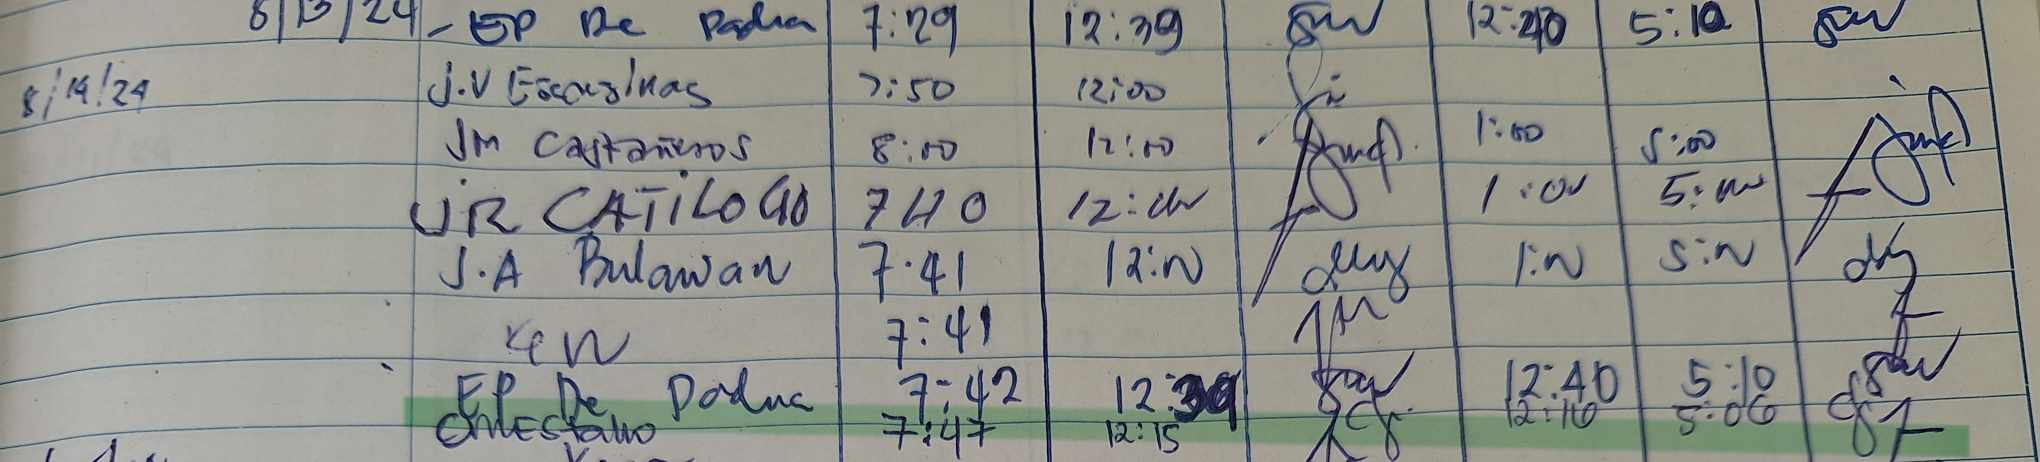 8/13/24 - EP De Padua 7:29 12:39 12:40 5:10
8/14/24 J.V Escasinas 7:50 12:00
JM Castañeros 8:00 12:00 1:00 5:00
JR CATILOGO 740 12:00 1:00 5:00
J.A Bulawan 7:41 12:N 1:N 5:N
Ken 7:41
EP De Padua 7:42 12:39 12:40 5:10
7:47 12:15 12:16 5:06